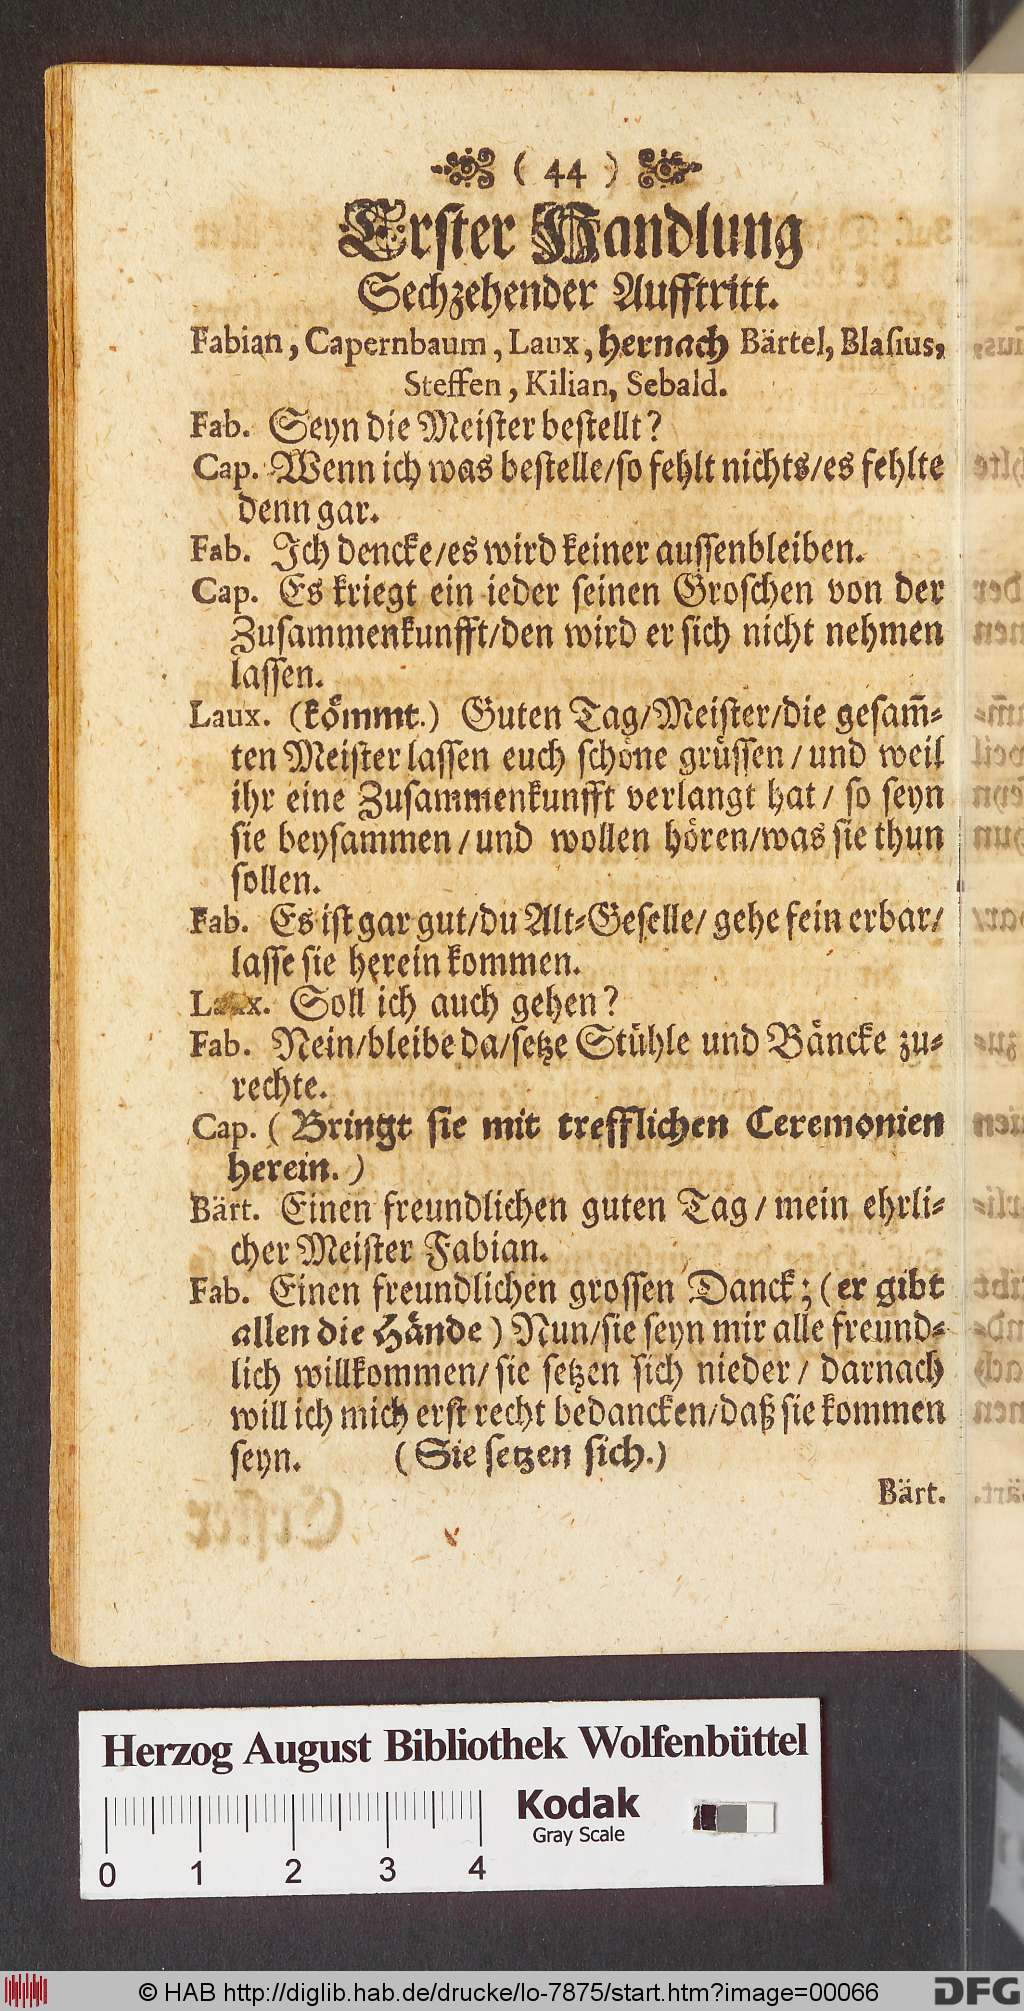 ( 44 )
Erster Handlung
Sechzehender Aufftritt.
Fabian, Capernbaum, Laux, hernach Bärtel, Blasius,
Steffen, Kilian, Sebald.
Fab. Seyn die Meister bestellt?
Cap. Wenn ich was bestelle/so fehlt nichts/es fehlte
denn gar.
Fab. Ich dencke/es wird keiner aussenbleiben.
Cap. Es kriegt ein ieder seinen Groschen von der
Zusammenkunfft/den wird er sich nicht nehmen
lassen.
Laux. (kömmt.) Guten Tag/Meister/die gesam̃-
ten Meister lassen euch schöne grüssen/und weil
ihr eine Zusammenkunfft verlangt hat/ so seyn
sie beysammen/und wollen hören/was sie thun
sollen.
Fab. Es ist gar gut/du Alt-Geselle/ gehe fein erbar/
lasse sie herein kommen.
Laux. Soll ich auch gehen?
Fab. Nein/bleibe da/setze Stühle und Bäncke zu-
rechte.
Cap. (Bringt sie mit trefflichen Ceremonien
herein.)
Bärt. Einen freundlichen guten Tag/mein ehrli-
cher Meister Fabian.
Fab. Einen freundlichen grossen Danck; (er gibt
allen die Hände) Nun/sie seyn mir alle freund-
lich willkommen/ sie setzen sich nieder/ darnach
will ich mich erst recht bedancken/daß sie kommen
seyn. (Sie setzen sich.)
Bärt.
Herzog August Bibliothek Wolfenbüttel
Kodak
Gray Scale
0 1 2 3 4
© HAB http://diglib.hab.de/drucke/lo-7875/start.htm?image=00066
DFG